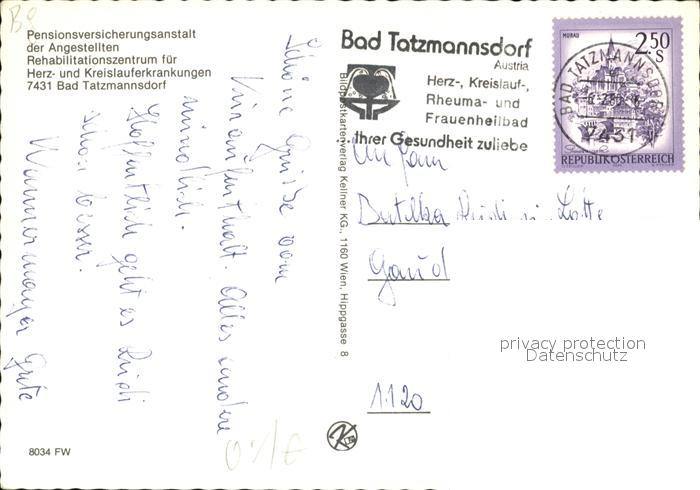 Pensionsversicherungsanstalt
der Angestellten
Rehabilitationszentrum für
Herz- und Kreislauferkrankungen
7431 Bad Tatzmannsdorf
Schöne Grüße vom
Kuraufenthalt. Alles andere
mündlich.
Hoffentlich geht es Rudi
schon besser.
Wannermayer Grete
8034 FW
Bildpostkartenverlag Kellner KG., 1160 Wien, Hippgasse 8
Bad Tatzmannsdorf
Austria
Herz-, Kreislauf-,
Rheuma- und
Frauenheilbad
Ihrer Gesundheit zuliebe
MURAU
2.50
S
BAD TATZMANNSDORF
7431
REPUBLIK ÖSTERREICH
Rudi u. Lotte
privacy protection
Datenschutz
1120